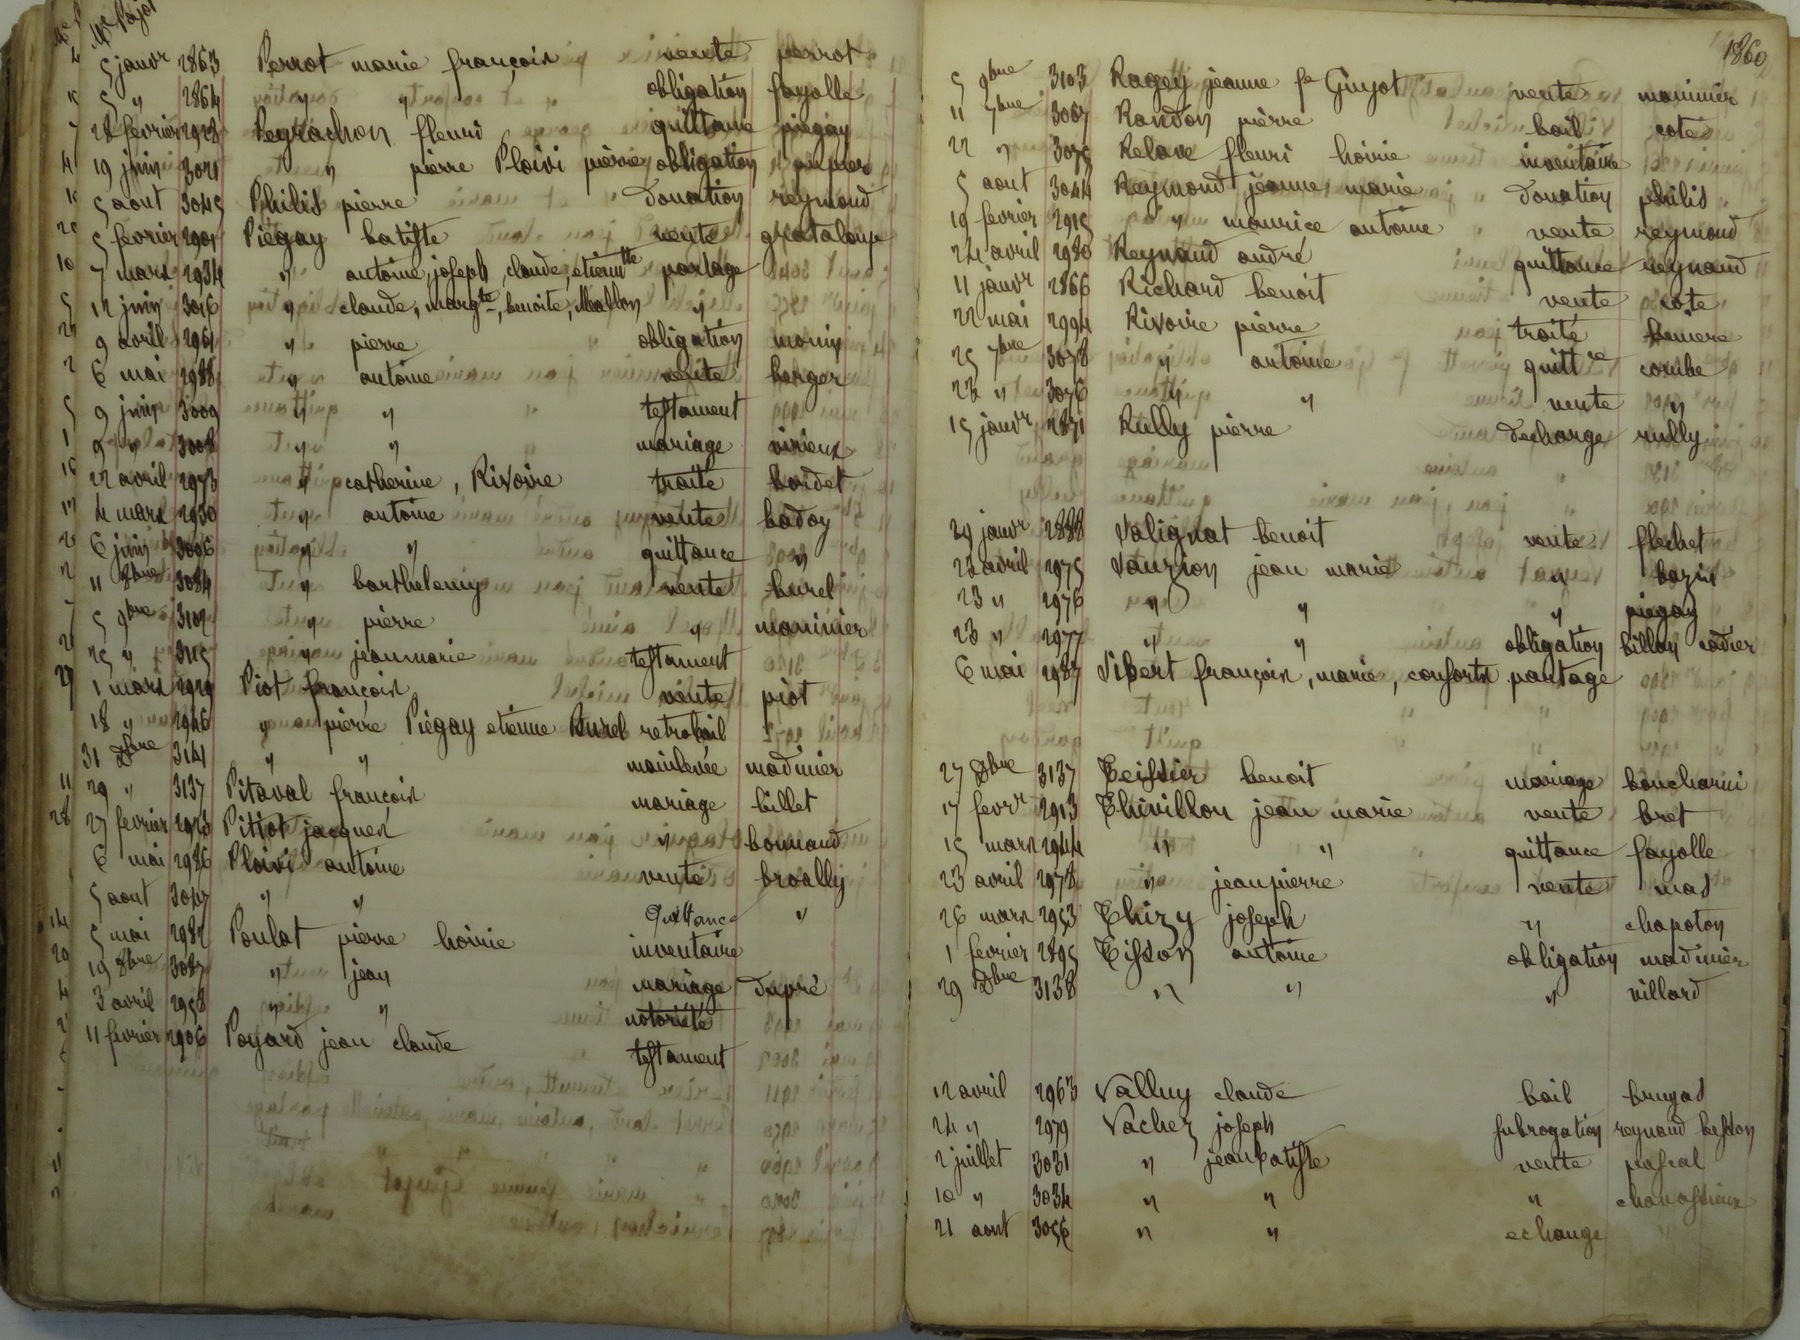 5 janvr 2863 Perrot marie françois vente perrot
5 " 2864 obligation fayolle
28 fevrier 2923 Peyrachon fleuri quittance piegay
19 juin 3021 " pierre Ploivi pierre obligation pupier
5 aout 3045 Philis pierre donation reymond
5 fevrier 2901 Piégay batiste vente grataloup
7 mars 2934 " antoine, joseph, claude, etienntte partage
12 juin 3016 " claude, margte, benoite, Maillon "
9 avril 2961 " pierre obligation
6 mai 2988 " antoine vente berger
9 juin 3009 " " testament
9 " 3008 " " mariage virieux
22 avril 2973 " catherine, Rivoire traité bordet
4 mars 2930 " antoine vente badoy
6 juin 3006 " " quittance "
11 8bre 3084 " barthelemy vente burel
5 9bre 3102 " pierre " maninier
25 " 3115 " jean marie testament
1 mars 2929 Piot françois vente piot
18 " 2946 " pierre Piégay etienne Burel retrobail
31 Dbre 3141 " " mainlevée madinier
29 " 3137 Pitaval françois mariage billet
27 fevrier 2923 Pittot jacques " bonnand
6 mai 2986 Ploivi antoine vente broally
5 aout 3047 " " Quittance "
5 mai 2982 Poulat pierre hoirie inventaire
19 8bre 3087 " jean mariage dupré
3 avril 2958 " " notoriété
11 fevrier 2906 Poyard jean claude testament
1860
5 9bre 3103 Ragey jeanne fe Guyot vente maninier
11 7bre 3067 Randon pierre bail cote
22 " 3075 Relave fleuri hoirie inventaire
5 aout 3044 Reymond jeanne marie donation philis
19 fevrier 2915 " maurice antoine vente reymond
24 avril 2980 Reynaud andré quittance reynaud
11 janvr 2866 Richard benoit vente cote
22 mai 2994 Rivoire pierre traité
25 7bre 3078 " antoine quittce combe
22 " 3076 " " vente "
15 janvr 2871 Rully pierre decharge rully
29 janvr 2888 Salignat benoit vente flechet
22 avril 2975 Sauzion jean marie " bazin
23 " 2976 " " " piegay
23 " 2977 " " obligation billon cadier
6 mai 2987 Sibert françois, marie, consorts partage
27 Dbre 3137 Teissier benoit mariage boucharni
17 fevr 2913 Thivillon jean marie vente bret
15 mars 2944 " " quittance fayolle
23 avril 2978 " jean pierre vente mas
26 mars 2953 Thizy joseph " chapoton
1 fevrier 2895 Tisson antoine obligation madinier
29 Dbre 3138 " " " villard
12 avril 2963 Valluy claude bail bruyas
24 " 2979 Vachez joseph subrogation reynaud besson
2 juillet 3031 " jean batiste vente pascal
10 " 3034 " " " chavassieux
21 aout 3056 " " echange